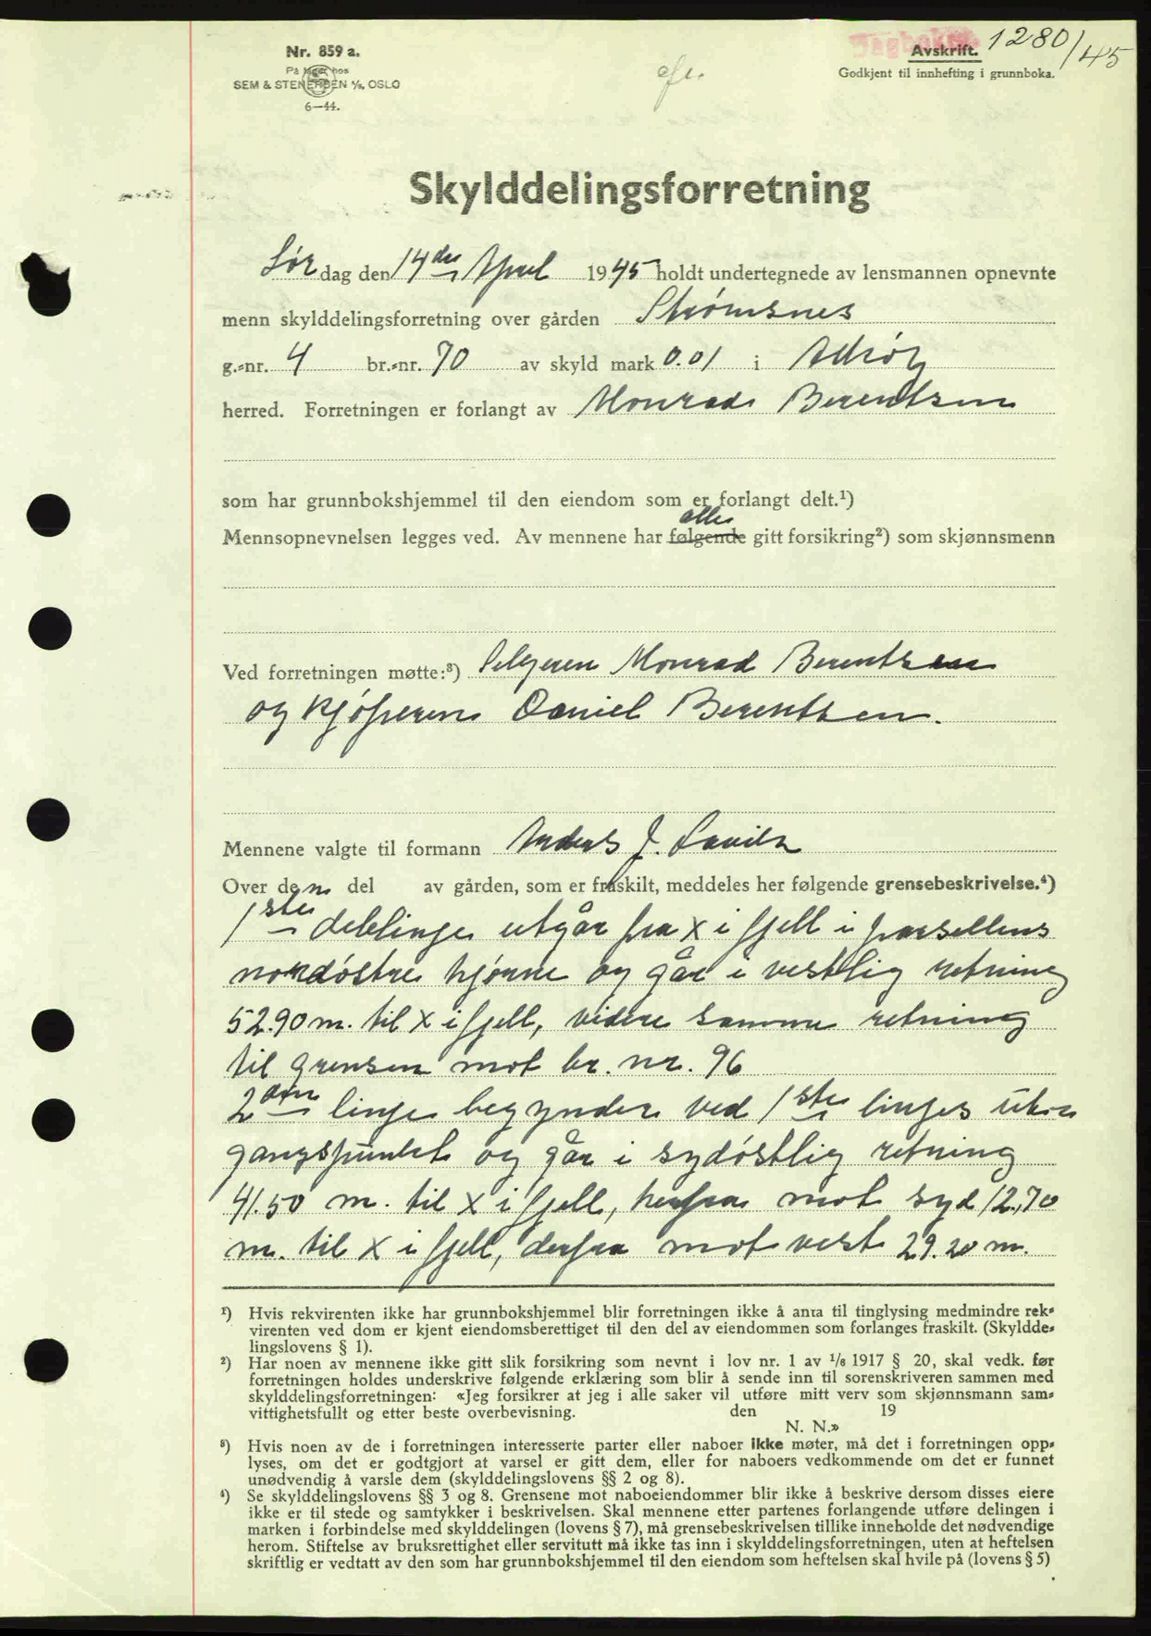 Nr. 859 a.
På lager hos
SEM & STENERSEN A/S, OSLO
6—44.
Dagbok nr. 1280/45
Avskrift.
Godkjent til innhefting i grunnboka.
Skylddelingsforretning
Lør dag den 14de April 1945 holdt undertegnede av lensmannen opnevnte
menn skylddelingsforretning over gården Strømsnes
g.-nr. 4 br.-nr. 70 av skyld mark 0.01 i
herred. Forretningen er forlangt av Monrad Berentsen
som har grunnbokshjemmel til den eiendom som er forlangt delt.¹)
alle
Mennsopnevnelsen legges ved. Av mennene har følgende gitt forsikring²) som skjønnsmenn
Ved forretningen møtte:³) Selgeren Monrad Berentsen
og kjøperen Daniel Berentsen.
Mennene valgte til formann Anders J.
Over den del av gården, som er fraskilt, meddeles her følgende grensebeskrivelse.⁴)
1ste delelinje utgår fra x i fjell i parsellens
nordøstre hjørne og går i vestlig retning
52.90 m. til x i fjell, videre samme retning
til grensen mot br. nr. 96
2den linje begynder ved 1ste linjes ut-
gangspunkt og går i sydøstlig retning
41.50 m. til x i fjell, herfra mot syd 12,70
m. til x i fjell, derfra mot vest 29.20 m.
¹) Hvis rekvirenten ikke har grunnbokshjemmel blir forretningen ikke å anta til tinglysing medmindre rek-
virenten ved dom er kjent eiendomsberettiget til den del av eiendommen som forlanges fraskilt. (Skyldde-
lingslovens § 1).
²) Har noen av mennene ikke gitt slik forsikring som nevnt i lov nr. 1 av 1/6 1917 § 20, skal vedk. før
forretningen holdes underskrive følgende erklæring som blir å sende inn til sorenskriveren sammen med
skylddelingsforretningen: «Jeg forsikrer at jeg i alle saker vil utføre mitt verv som skjønnsmann sam-
vittighetsfullt og etter beste overbevisning. den 19
N. N.»
³) Hvis noen av de i forretningen interesserte parter eller naboer ikke møter, må det i forretningen opp-
lyses, om det er godtgjort at varsel er gitt dem, eller for naboers vedkommende om det er funnet
unødvendig å varsle dem (skylddelingslovens §§ 2 og 8).
⁴) Se skylddelingslovens §§ 3 og 8. Grensene mot naboeiendommer blir ikke å beskrive dersom disses eiere
ikke er til stede og samtykker i beskrivelsen. Skal mennene etter partenes forlangende utføre delingen i
marken i forbindelse med skylddelingen (lovens § 7), må grensebeskrivelsen tillike inneholde det nødvendige
herom. Stiftelse av bruksrettighet eller servitutt må ikke tas inn i skylddelingsforretningen, uten at heftelsen
skriftlig er vedtatt av den som har grunnbokshjemmel til den eiendom som heftelsen skal hvile på (lovens § 5)